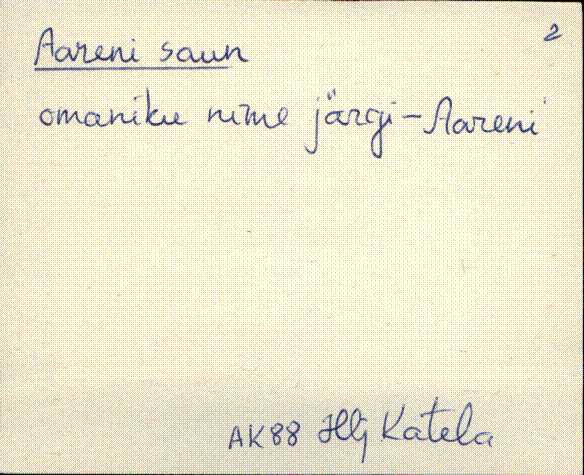 2
Aareni saun
omaniku nime järgi - Aareni
AK88 Hlj Katela